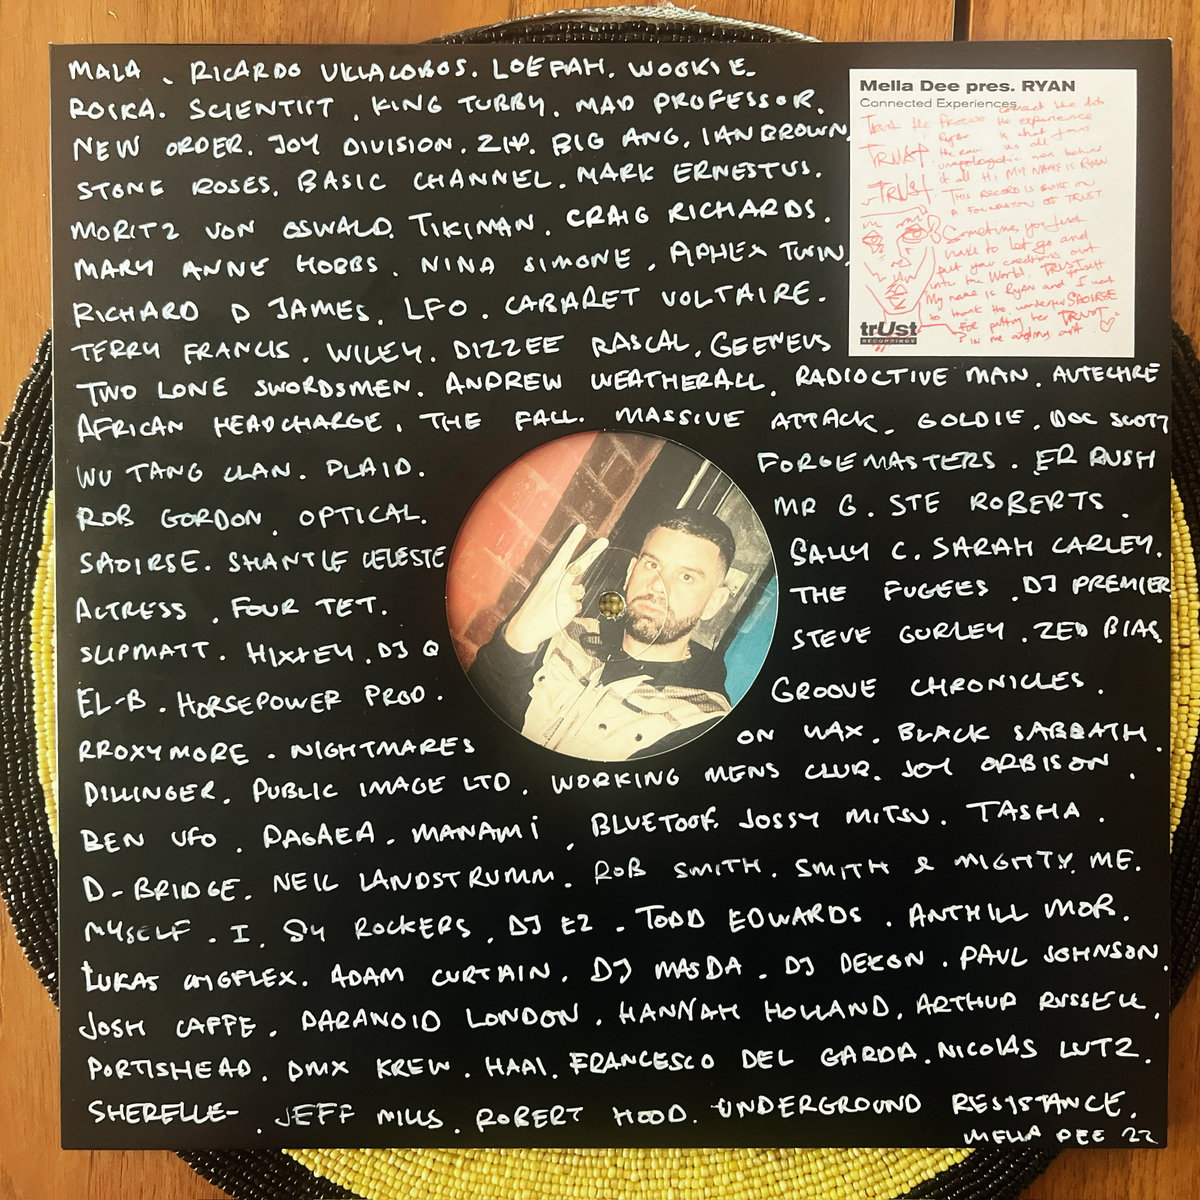 MALA . RICARDO VILLALOBOS. LOEFAH. WOOKIE.
ROSKA. SCIENTIST . KING TUBBY. MAD PROFESSOR.
NEW ORDER. JOY DIVISION. ZIP. BIG ANG. IAN BROWN.
STONE ROSES. BASIC CHANNEL. MARK ERNESTUS.
MORITZ VON OSWALD. TIKIMAN. CRAIG RICHARDS.
MARY ANNE HOBBS. NINA SIMONE. APHEX TWIN.
RICHARD D JAMES. LFO. CABARET VOLTAIRE.
TERRY FRANCIS. WILEY. DIZZEE RASCAL. GEENEUS
TWO LONE SWORDSMEN. ANDREW WEATHERALL. RADIOCTIVE MAN. AUTECHRE
AFRICAN HEADCHARGE. THE FALL. MASSIVE ATTACK. GOLDIE. DOC SCOTT
WU TANG CLAN. PLAID. FORGEMASTERS. ED RUSH
ROB GORDON. OPTICAL. MR G. STE ROBERTS.
SAOIRSE. SHANTI CELESTE SALLY C. SARAH CARLEY.
ACTRESS. FOUR TET. THE FUGEES. DJ PREMIER
SLIPMATT. HIXXEY. DJ Q STEVE GURLEY. ZED BIAS.
EL-B. HORSEPOWER PROD. GROOVE CHRONICLES.
RROXYMORE. NIGHTMARES ON WAX. BLACK SABBATH.
DILLINGER. PUBLIC IMAGE LTD. WORKING MENS CLUB. JOY ORBISON.
BEN UFO. PAGAEA. MANAMI. BLUETOOF. JOSSY MITSU. TASHA.
D-BRIDGE. NEIL LANDSTRUMM. ROB SMITH. SMITH & MIGHTY. ME.
MYSELF. I. SHY ROCKERS. DJ EZ. TODD EDWARDS. ANTHILL MOB.
LUKAS WIGFLEX. ADAM CURTAIN. DJ MASDA. DJ DEKON. PAUL JOHNSON.
JOSH CAFFE. PARANOID LONDON. HANNAH HOLLAND. ARTHUR RUSSELL.
PORTISHEAD. DMX KREW. HAAI. FRANCESCO DEL GARDA. NICOLAS LUTZ.
SHERELLE. JEFF MILLS. ROBERT HOOD. UNDERGROUND RESISTANCE.
MELLA DEE 22
Mella Dee pres. RYAN
Connected Experiences
connect the dots
Trust the Process the experience
Ryan is what joins
TRUST the raw us all
unapologetic man behind
it all Hi MY NAME IS RYAN
TRUST THIS RECORD IS BUILT ON
A FOUNDATION OF TRUST
Sometimes you just
have to let go and
put your creations out
into the World. TRUST yourself
My name is Ryan and I want
to thank the wonderful SAOIRSE
for putting her TRUST
in me
trUst
RECORDINGS